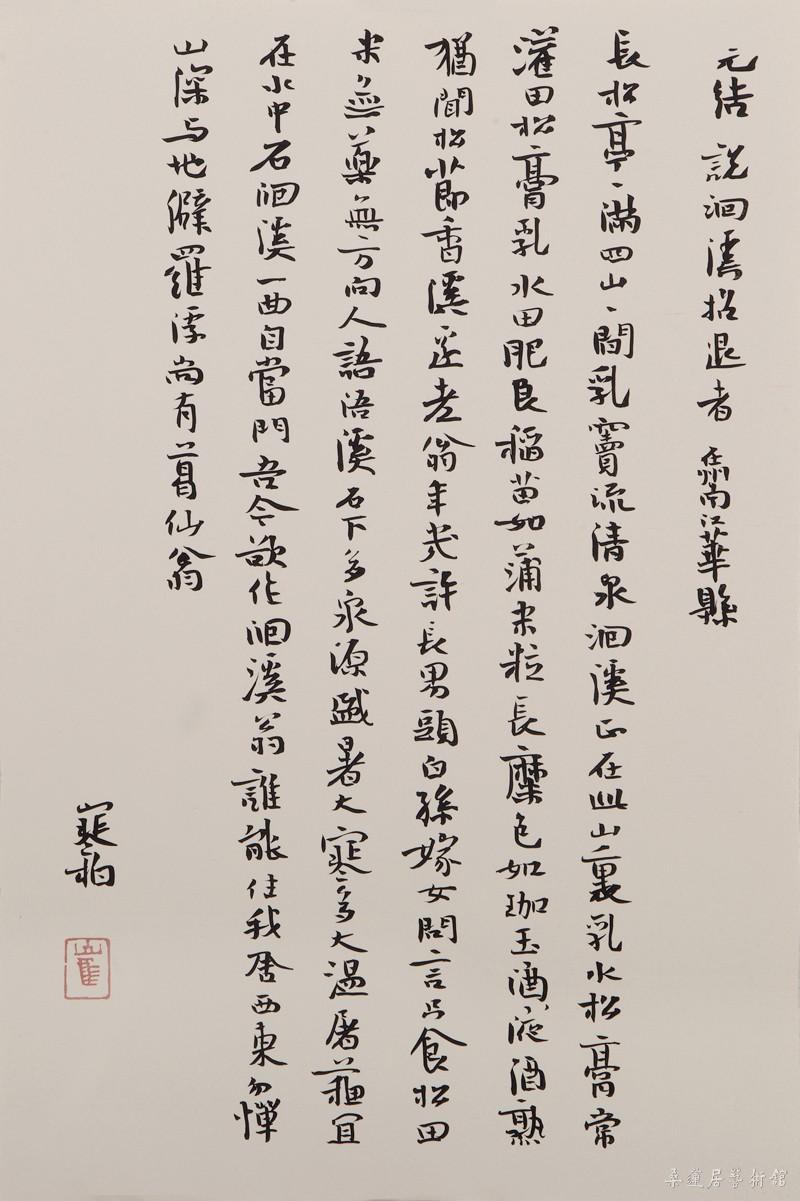 元結 說洄溪招退者 在州南江華縣
長松亭、滿四山、間乳竇流清泉洄溪正在此山裏乳水松膏常
灌田松膏乳水田肥良稻苗如蒲米粒長糜色如珈玉酒、液酒熟
猶聞松節香溪邊老翁年幾許長男頭白孫嫁女問言只食松田
米無藥無方向人語浯溪石下多泉源盛暑大寒冬大溫屠蘇宜
在水中石洄溪一曲自當門吾今欲作洄溪翁誰能住我舍西東勿憚
山深与地僻羅浮尚有葛仙翁
寒柏
桑蓮居藝術館